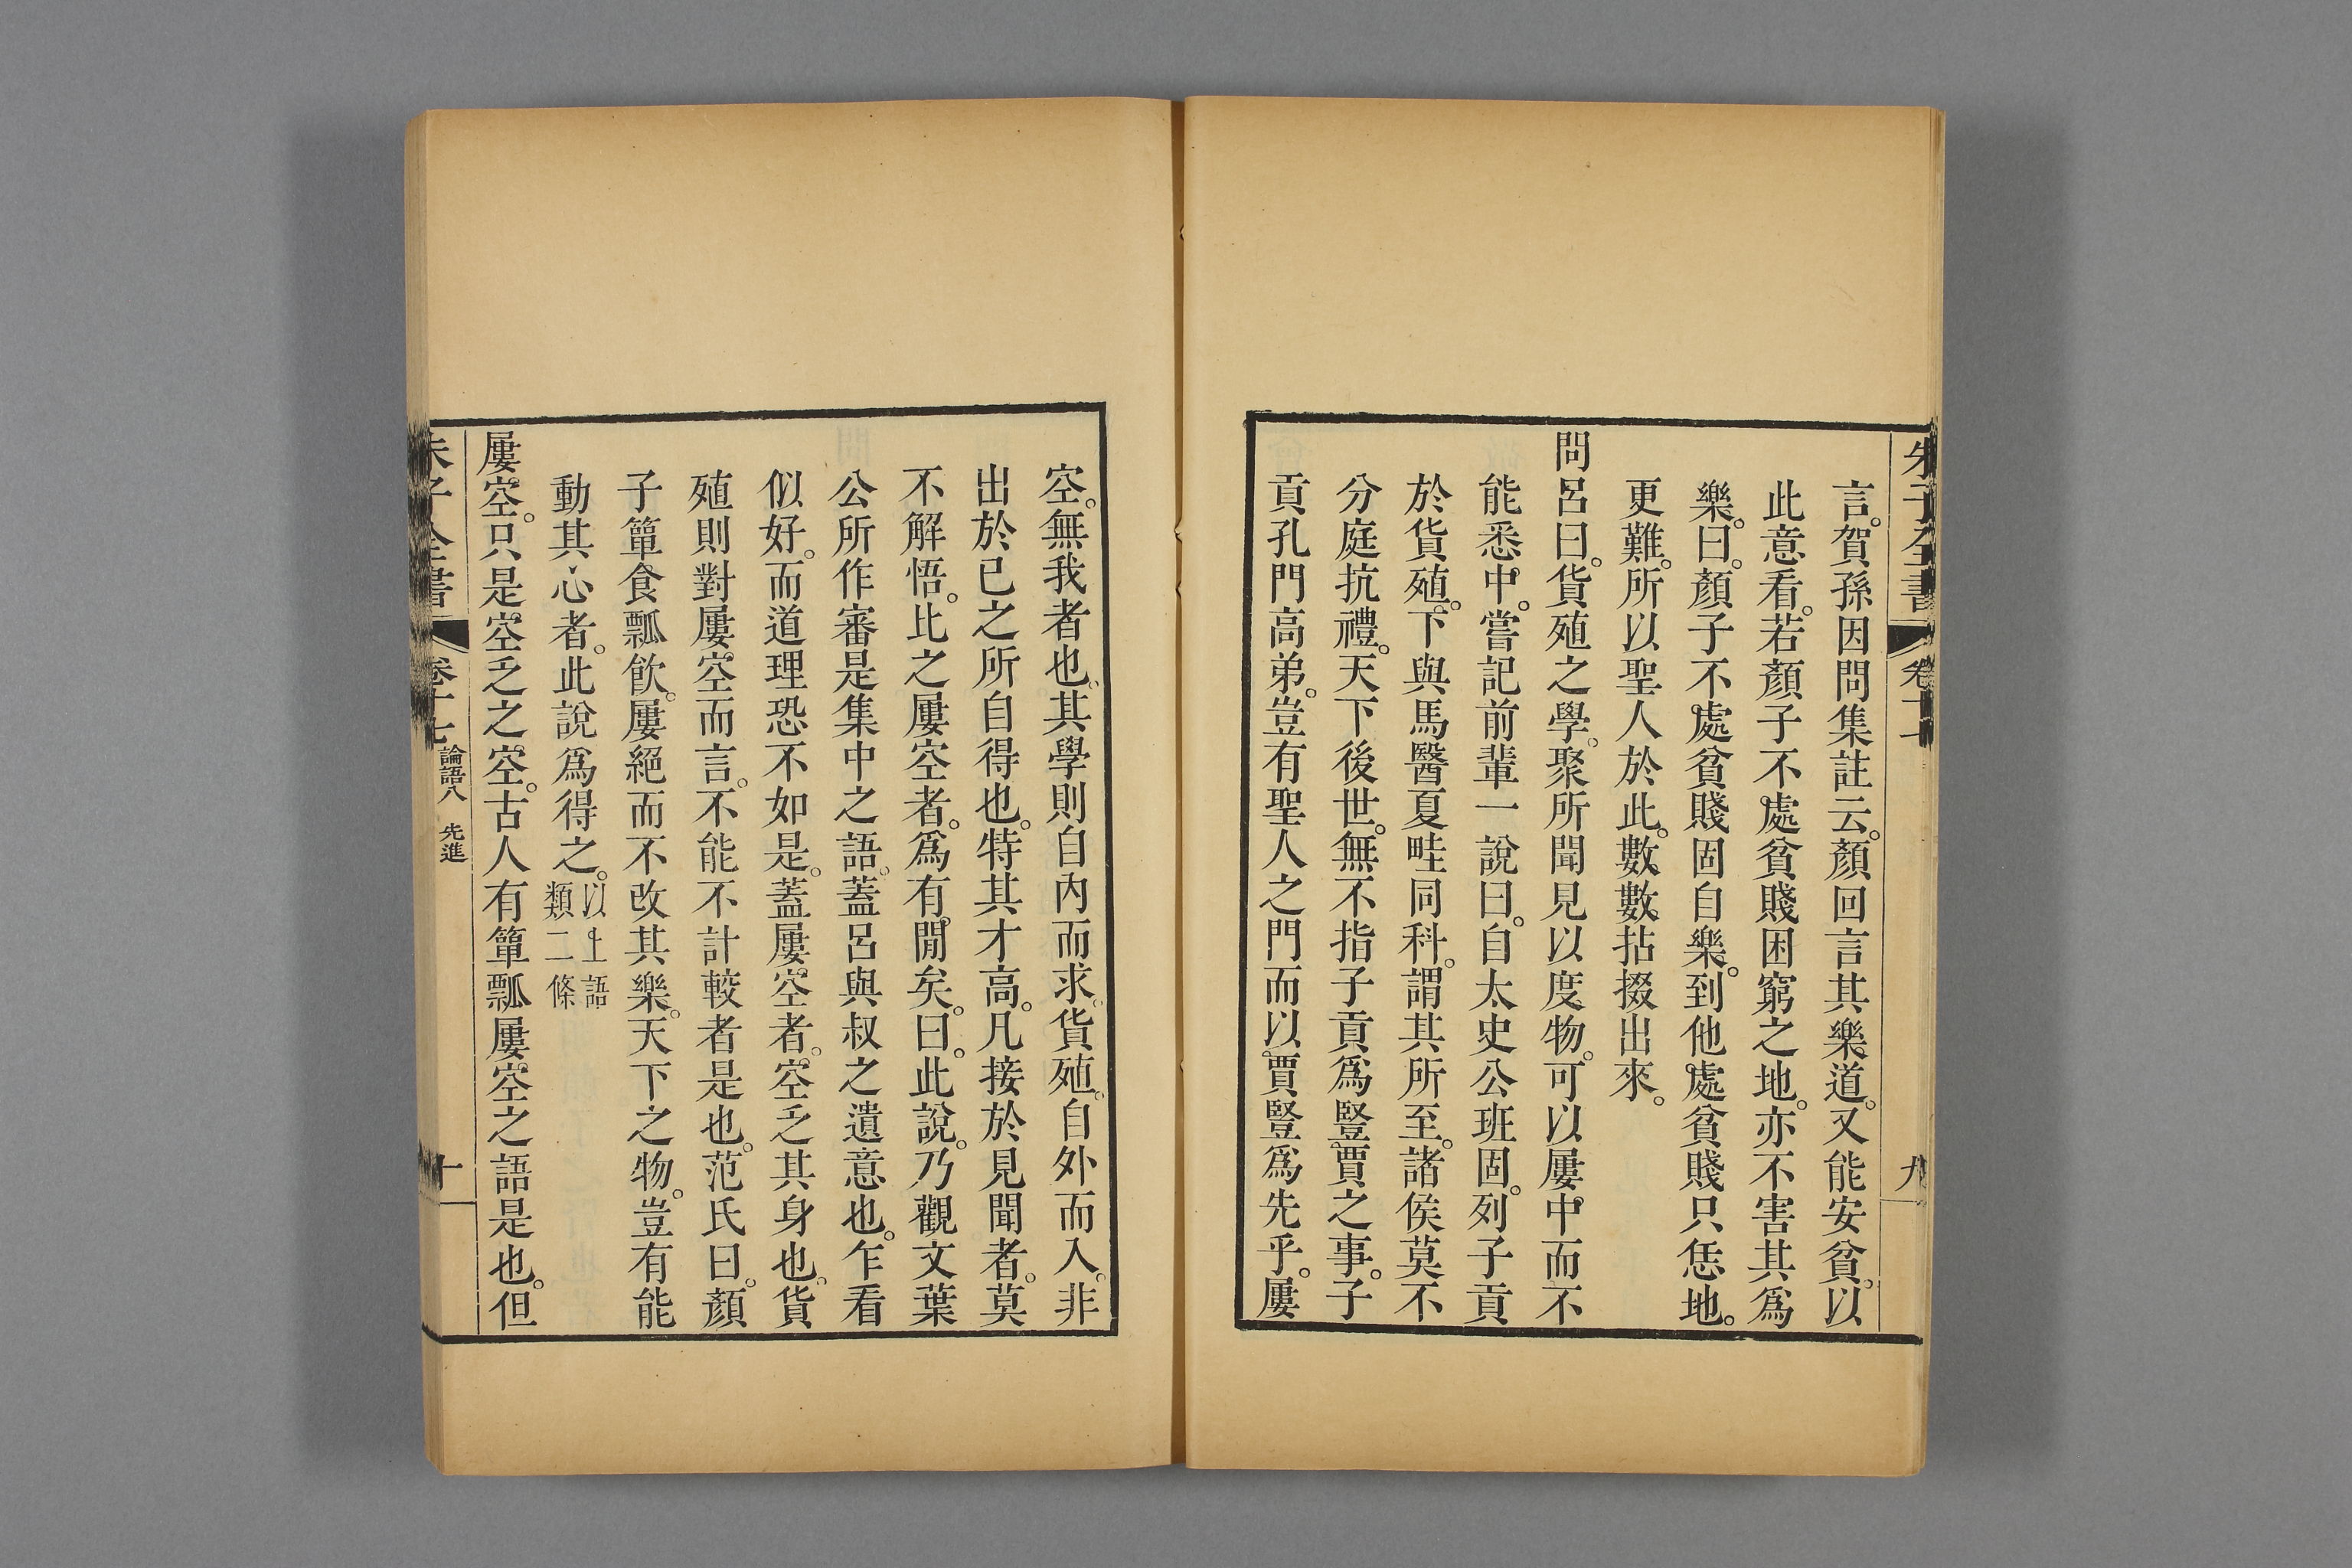 言。賀孫因問集註云。顏回言其樂道。又能安貧。以
此意看。若顏子不處貧賤困窮之地。亦不害其爲
樂。曰。顏子不處貧賤固自樂。到他處貧賤只恁地。
更難。所以聖人於此。數數拈掇出來。
問呂曰。貨殖之學。聚所聞見以度物。可以屢中而不
能悉中。嘗記前輩一說曰。自太史公班固。列子貢
於貨殖。下與馬醫夏畦同科。謂其所至。諸侯莫不
分庭抗禮。天下後世。無不指子貢爲豎賈之事。子
貢孔門高弟。豈有聖人之門而以賈豎爲先乎。屢
空。無我者也。其學則自內而求。貨殖。自外而入。非
出於己之所自得也。特其才高。凡接於見聞者。莫
不解悟。比之屢空者。爲有閒矣。曰。此說。乃觀文葉
公所作審是集中之語。蓋呂與叔之遺意也。乍看
似好。而道理恐不如是。蓋屢空者。空乏其身也。貨
殖則對屢空而言。不能不計較者是也。范氏曰。顏
子簞食瓢飲。屢絕而不改其樂。天下之物。豈有能
動其心者。此說爲得之。以上語
類二條
屢空。只是空乏之空。古人有簞瓢屢空之語是也。但
朱子全書 卷十七 論語八 先進 十